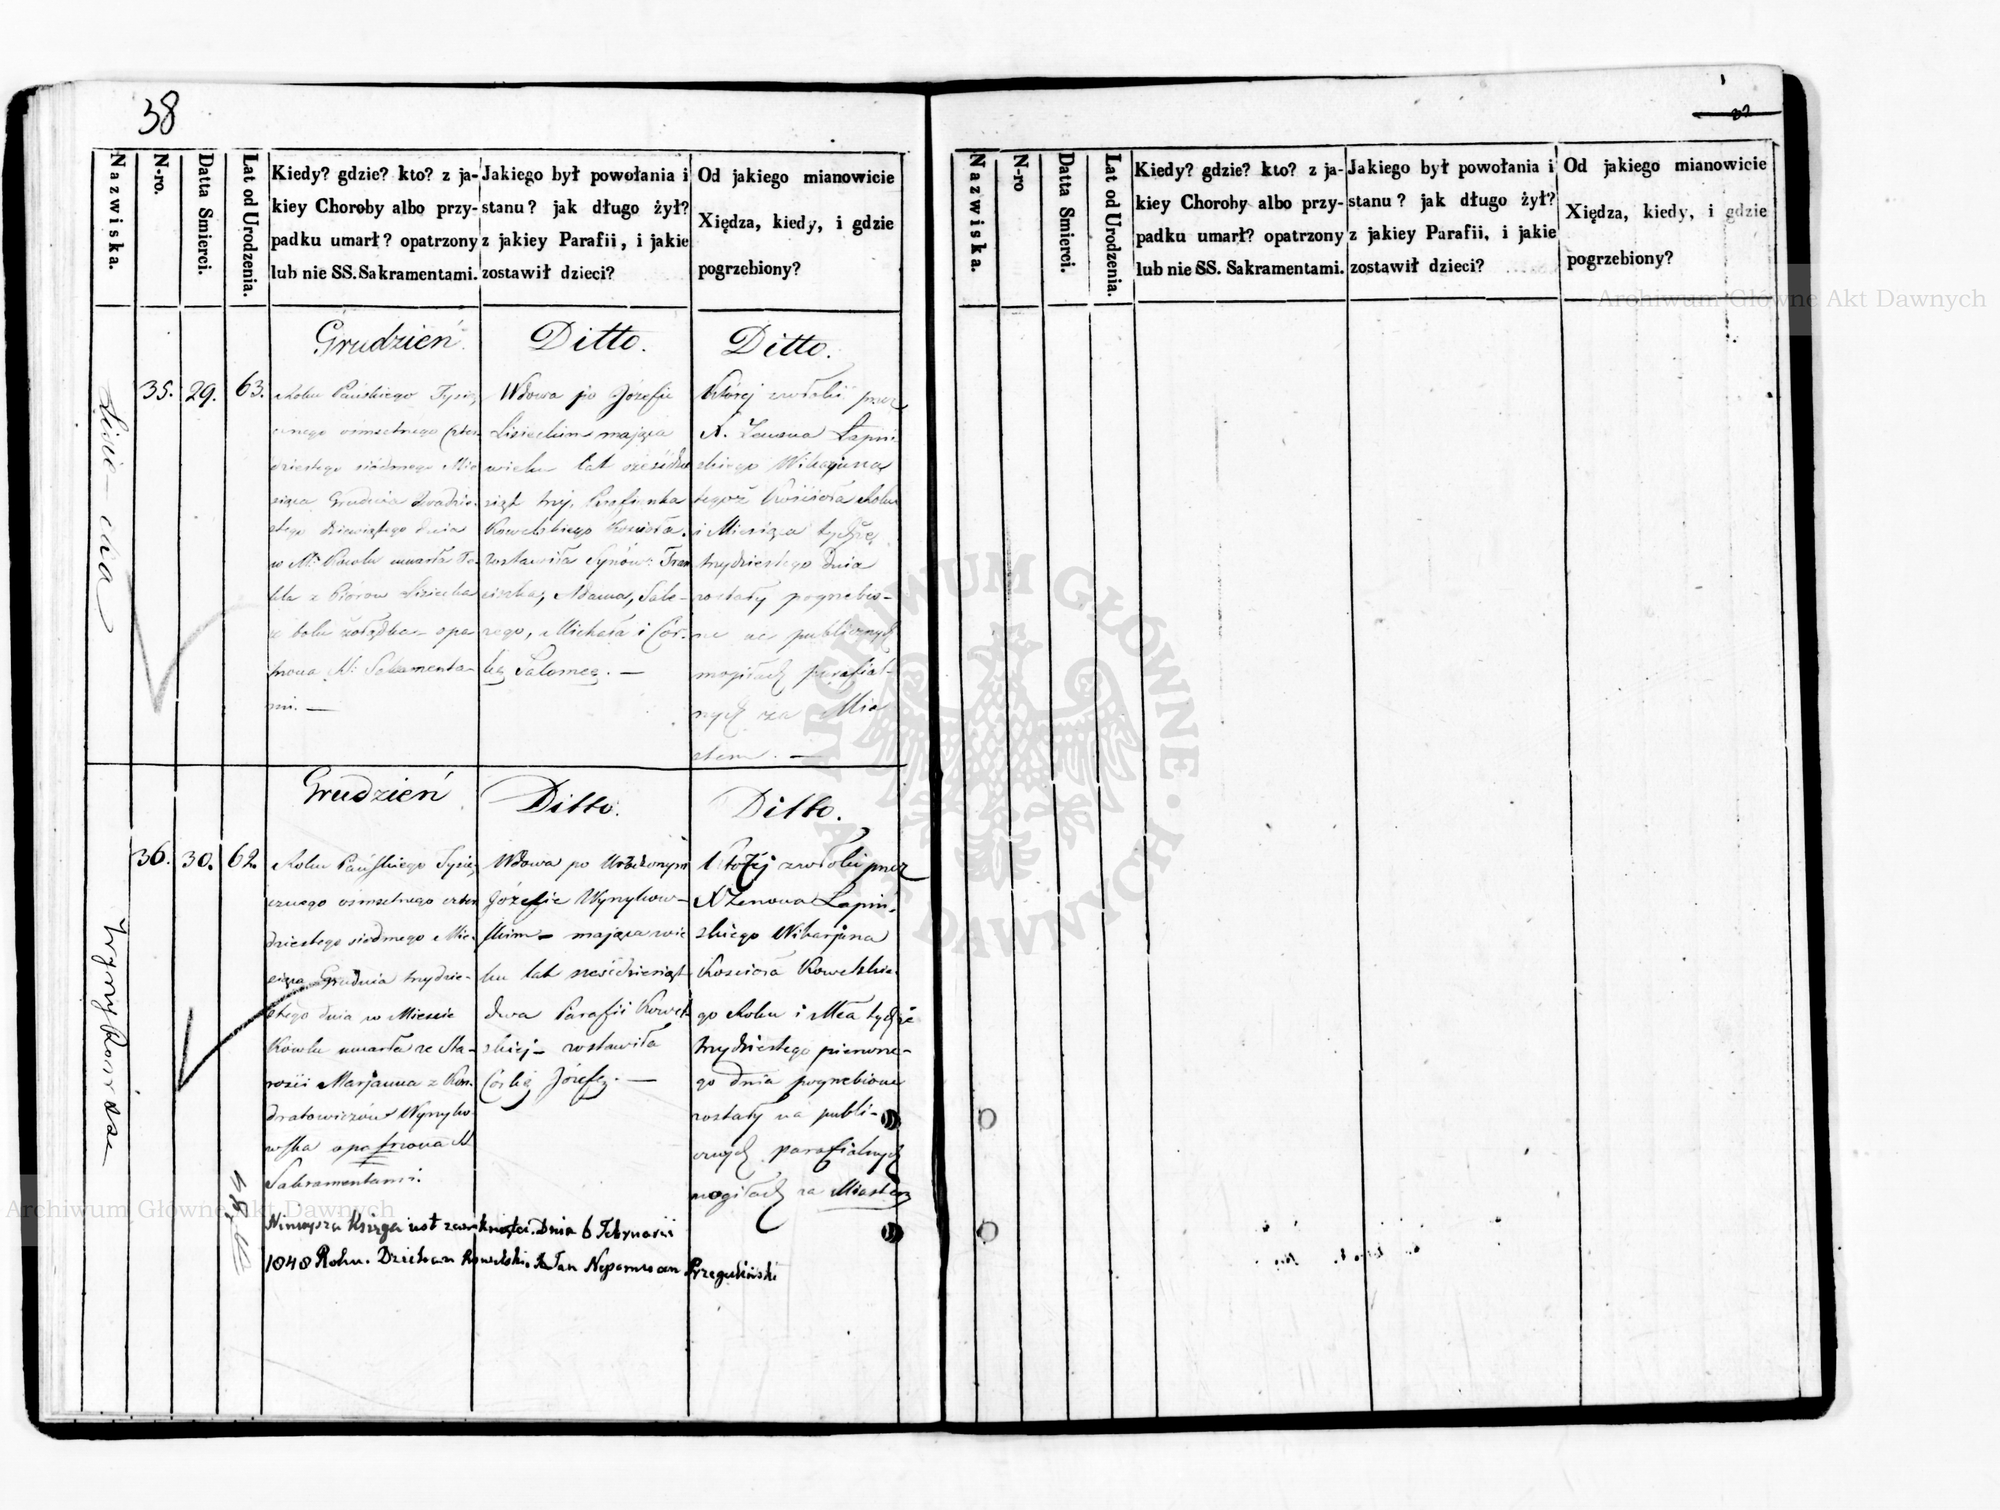 38
Nazwiska.
N-ro.
Datta Smierci.
Lat od Urodzenia.
Kiedy? gdzie? kto? z ja-
kiey Choroby albo przy-
padku umarł? opatrzony
lub nie SS. Sakramentami.
Jakiego był powołania i
stanu? jak długo żył?
z jakiey Parafii, i jakie
zostawił dzieci?
Od jakiego mianowicie
Xiędza, kiedy, i gdzie
pogrzebiony?
35.
29.
63.
Grudzień
Roku Pańskiego Tysią
cznego ośmsetnego czter
dziestego siódmego Mie
siąca Grudnia dwudzie-
stego dziewiątego dnia
w M. Kowlu umarła Te-
kla z Piórow Lisiecka
z bolu żołądka opa
trzona Sakramenta-
mi. —
Ditto.
Wdowa po Józefie
Lisieckim mająca
wieku lat sześćdzie
siąt trzy, Parafianka
Kowelskiego Kościoła.
Zostawiła Synów: Fran
ciszka, Adama,
Michała i Cór-
kę Salomeę. —
Ditto.
Której zwłoki przez
X. Zenona Łapiń
skiego Wikaryusza
tegoż Kościoła Roku
i Miesiąca tychże
trzydziestego dnia
zostały pogrzebio-
ne na publicznych
mogiłach parafial-
nych za Mia
stem. —
Wyrzykowska
36.
30.
62
Grudzień
Roku Pańskiego Tysią
cznego ośmsetnego czter
dziestego siódmego Mie-
siąca Grudnia trzydzie-
stego dnia w Mieście
Kowlu umarła ze Sta-
rości Marjanna z Kon-
dratowiczów Wyrzyko-
wska opatrzona
Sakramentami.
Ditto.
Wdowa po Urodzonym
Józefie Wyrzykow-
skim — mająca wie
ku lat sześćdziesiąt
dwa Parafii Kowel
skiej — zostawiła
Córkę Józefę. —
Ditto.
Której zwłoki przez
X Zenona Łapiń-
skiego Wikarjusza
Kościoła Kowelskie-
go Roku i Mca tychże
trzydziestego pierwsze-
go dnia pogrzebione
zostały na publi-
cznych parafialnych
mogiłach za Miastem
Niniejsza Księga jest zamknięta. Dnia 6 Februarii
1848 Roku. Dziekan Kowelski. X Jan Nepomucen
Nazwiska.
N-ro
Datta Smierci.
Lat od Urodzenia.
Kiedy? gdzie? kto? z ja-
kiey Choroby albo przy-
padku umarł? opatrzony
lub nie SS. Sakramentami.
Jakiego był powołania i
stanu? jak długo żył?
z jakiey Parafii, i jakie
zostawił dzieci?
Od jakiego mianowicie
Xiędza, kiedy, i gdzie
pogrzebiony?
Archiwum Główne Akt Dawnych
ARCHIWUM GŁÓWNE · AKT DAWNYCH ·
Archiwum Główne Akt Dawnych